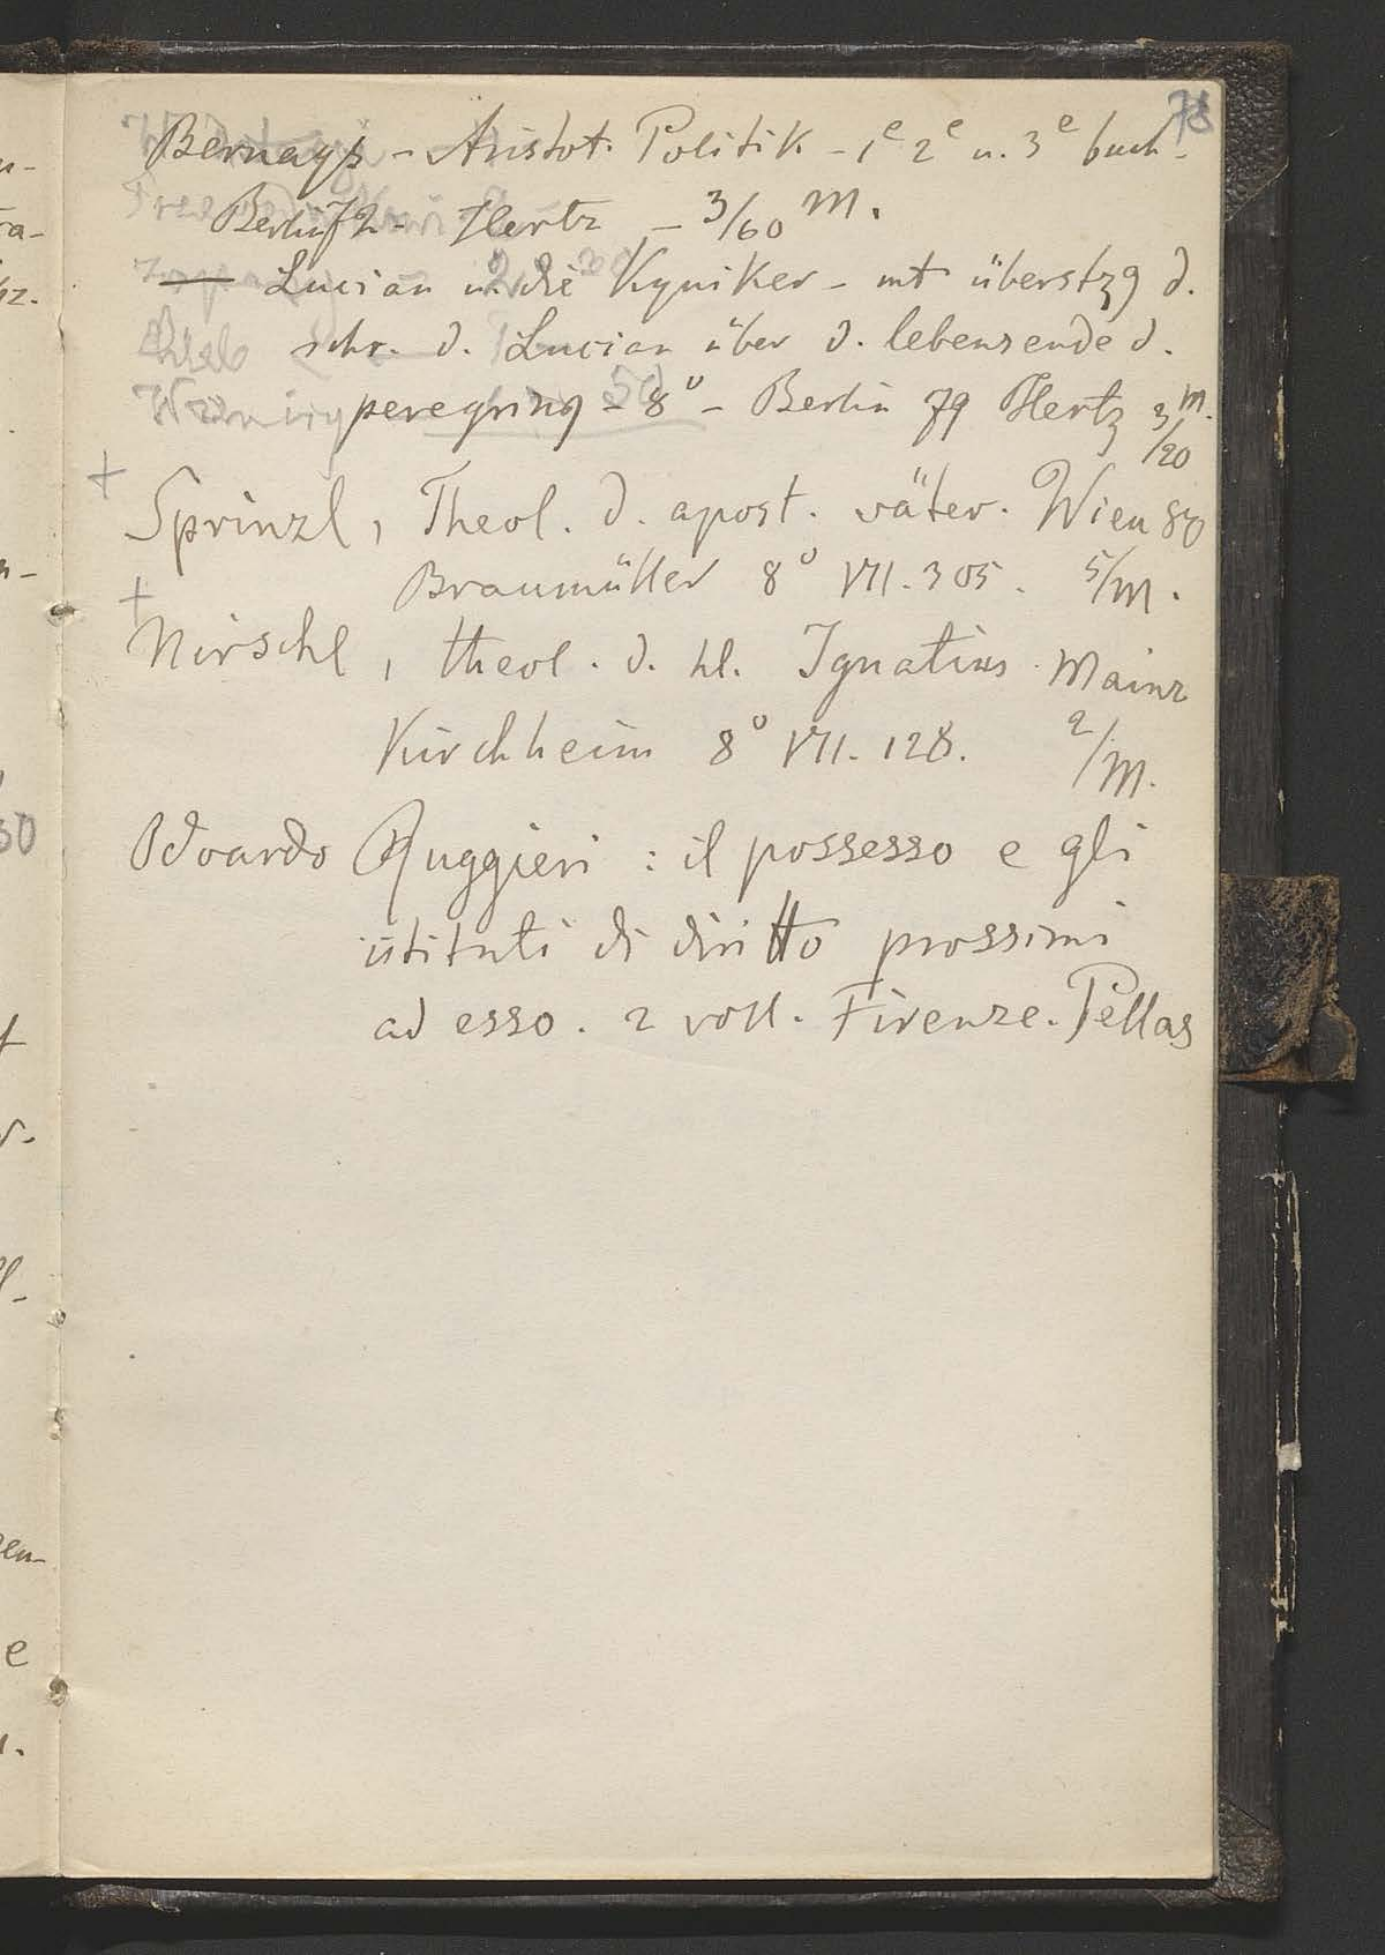 78
Bernays - Aristot. Politik - 1e 2e u. 3e buch.
Berlin 72 - Hertz - 3/60 M.
— Lucian u. die Kyniker - mt überstzg d.
schr. d. Lucian über d. lebensende d.
peregrins - 8° - Berlin 79 Hertz 3/20 M.
+ Sprinzl, Theol. d. apost. väter. Wien 80
Braumüller 8° VII. 305. 5/M.
+ Nirschl, theol. d. hl. Ignatius. Mainz
Kirchheim 8° VII. 128. 2/M.
Odoardo Ruggieri : il possesso e gli
istituti di diritto prossimi
ad esso. 2 voll. Firenze. Pellas